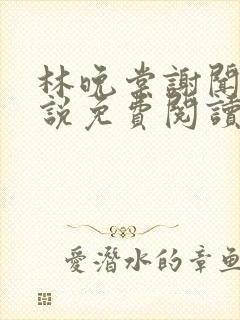 林晚棠謝聞
說免費閱讀
愛潛水的章魚